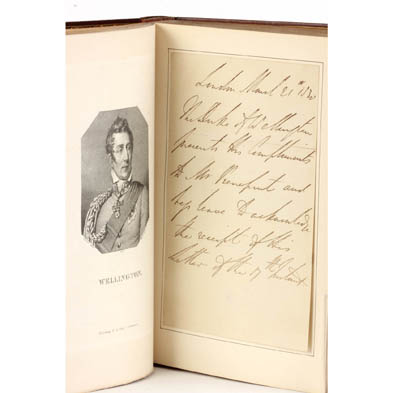 WELLINGTON.
London March 21st
The Duke of Wellington
presents his Compliments
to Mr and
begs leave to acknowledge
the receipt of his
Letter of the 17th Instant